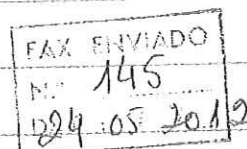 FAX ENVIADO
N.º 145
024.05.2012